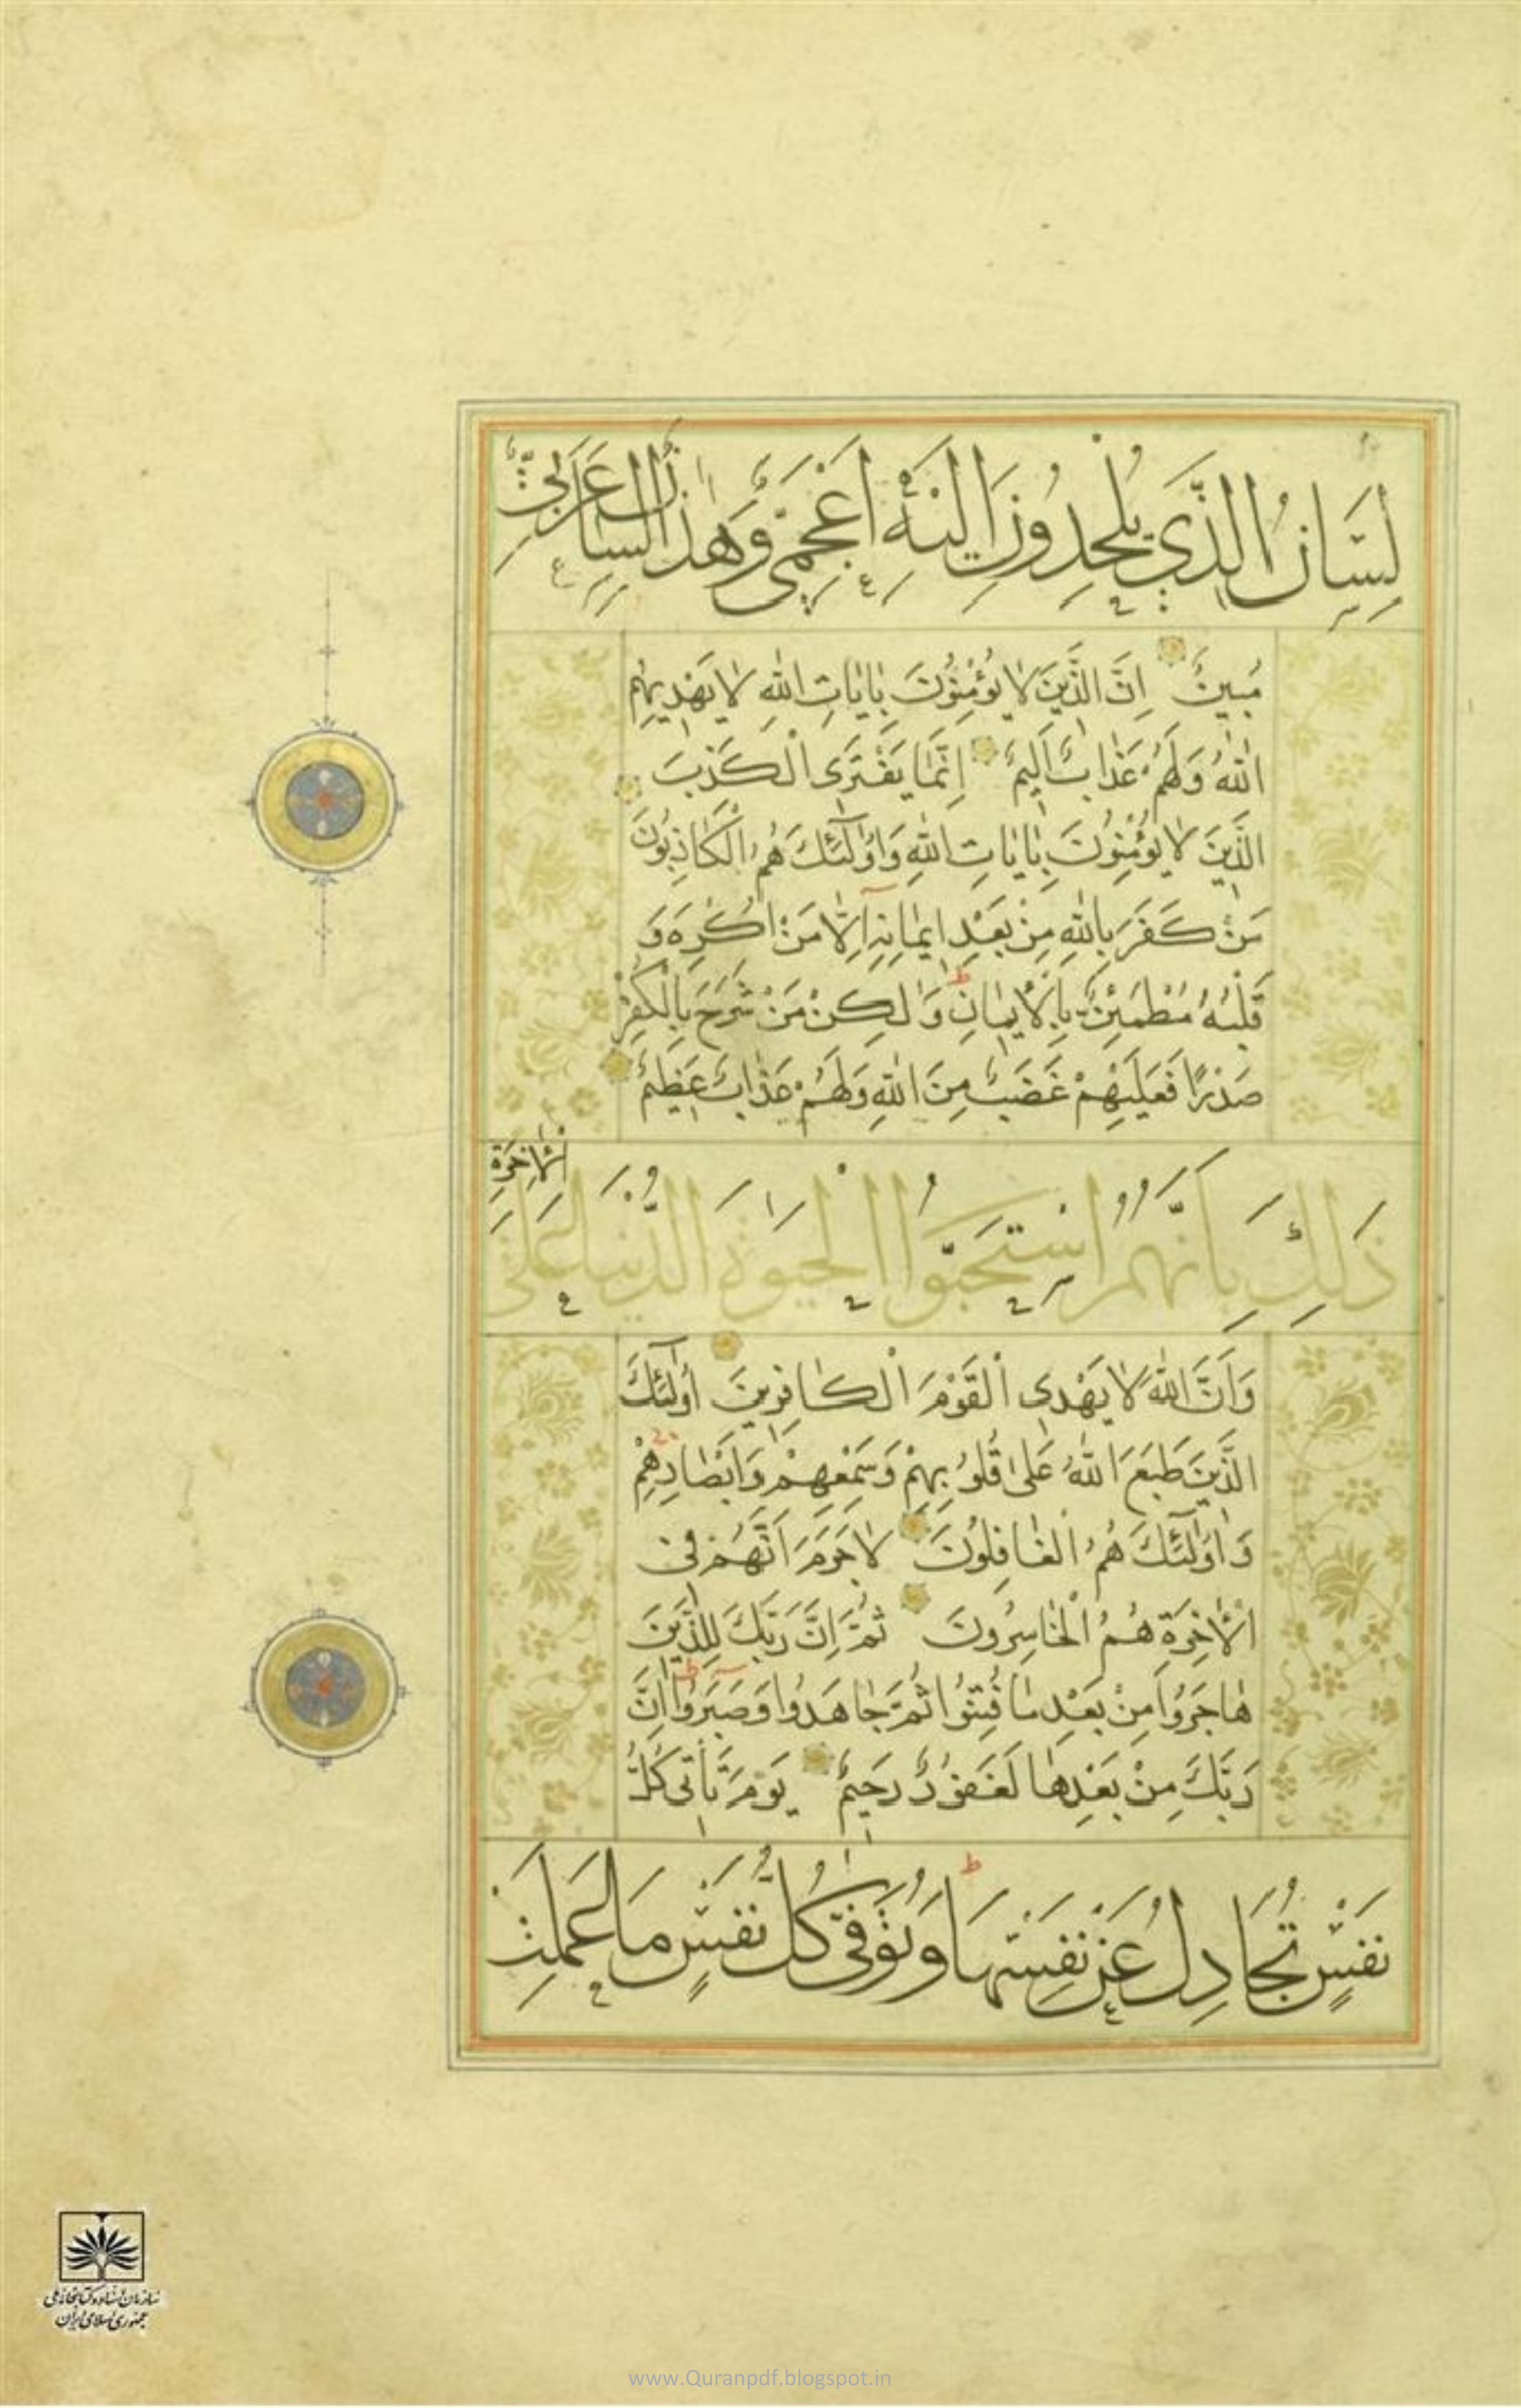 لِسَانُ الَّذِي يُلْحِدُونَ إِلَيْهِ أَعْجَمِيٌّ وَهٰذَا لِسَانٌ عَرَبِيٌّ
مُبِينٌ اِنَّ الَّذِينَ لَا يُؤْمِنُونَ بِاٰيَاتِ اللهِ لَا يَهْدِيهِمُ
اللهُ وَلَهُمْ عَذَابٌ اَلِيمٌ اِنَّمَا يَفْتَرِى الْكَذِبَ
الَّذِينَ لَا يُؤْمِنُونَ بِاٰيَاتِ اللهِ وَاُولٰٓئِكَ هُمُ الْكَاذِبُونَ
مَنْ كَفَرَ بِاللهِ مِنْ بَعْدِ اِيمَانِهِ اِلَّا مَنْ اُكْرِهَ وَ
قَلْبُهُ مُطْمَئِنٌّ بِالْاِيمَانِ وَلٰكِنْ مَنْ شَرَحَ بِالْكُفْرِ
صَدْرًا فَعَلَيْهِمْ غَضَبٌ مِنَ اللهِ وَلَهُمْ عَذَابٌ عَظِيمٌ
ذٰلِكَ بِاَنَّهُمُ اسْتَحَبُّوا الْحَيٰوةَ الدُّنْيَا عَلَى
الْاٰخِرَةِ
وَاَنَّ اللهَ لَا يَهْدِى الْقَوْمَ الْكَافِرِينَ اُولٰٓئِكَ
الَّذِينَ طَبَعَ اللهُ عَلٰى قُلُوبِهِمْ وَسَمْعِهِمْ وَاَبْصَارِهِمْ
وَاُولٰٓئِكَ هُمُ الْغَافِلُونَ لَا جَرَمَ اَنَّهُمْ فِى
الْاٰخِرَةِ هُمُ الْخَاسِرُونَ ثُمَّ اِنَّ رَبَّكَ لِلَّذِينَ
هَاجَرُوا مِنْ بَعْدِ مَا فُتِنُوا ثُمَّ جَاهَدُوا وَصَبَرُوا اِنَّ
رَبَّكَ مِنْ بَعْدِهَا لَغَفُورٌ رَحِيمٌ يَوْمَ تَأْتِى كُلُّ
نَفْسٍ تُجَادِلُ عَنْ نَفْسِهَا وَتُوَفّٰى كُلُّ نَفْسٍ مَا عَمِلَتْ
سازمان اسناد و کتابخانه ملی
جمهوری اسلامی ایران
www.Quranpdf.blogspot.in